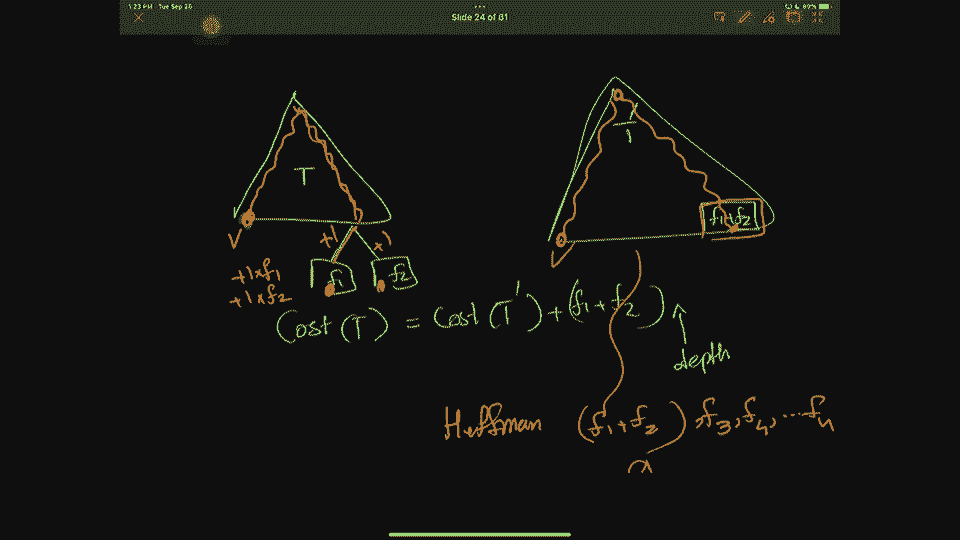 1:23 PM Tue Sep 26
Slide 24 of 81
89%
T
T'
f1+f2
V
V
+1
+1
f1
f2
+1×f1
+1×f2
Cost (T) = Cost (T') + (f1 + f2)
depth
Huffman (f1+f2), f3, f4, ... fn